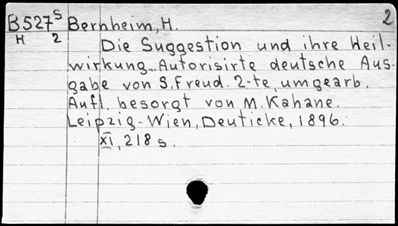 B527 S Bernheim, H. 2
H 2
Die Suggestion und ihre Heil-
wirkung. Autorisirte deutsche Aus-
gabe von S. Freud. 2-te, umgearb.
Aufl. besorgt von M. Kahane.
Leipzig-Wien, Deuticke, 1896.
XI, 218 s.